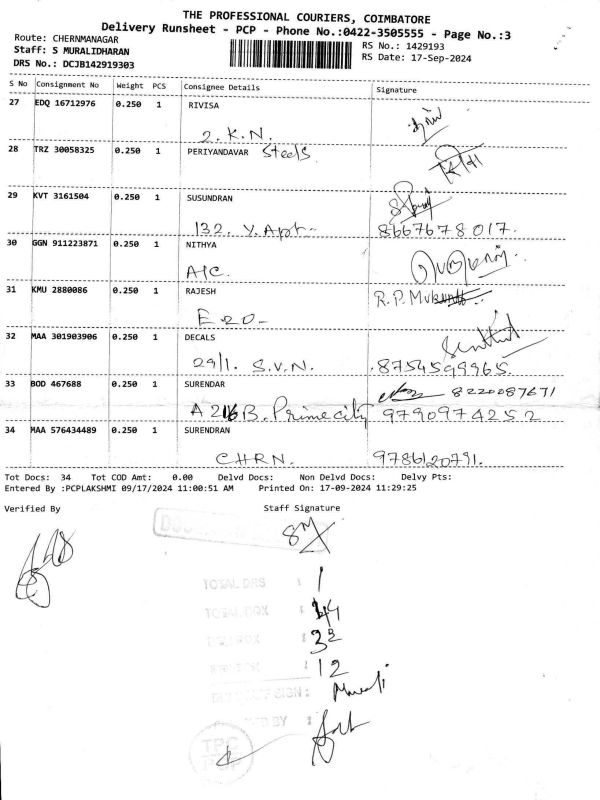 THE PROFESSIONAL COURIERS, COIMBATORE
Delivery Runsheet - PCP - Phone No.:0422-3505555 - Page No.:3
Route: CHERNMANAGAR
RS No.: 1429193
Staff: S MURALIDHARAN
RS Date: 17-Sep-2024
DRS No.: DCJB142919303
S No Consignment No Weight PCS Consignee Details Signature
27 EDQ 16712976 0.250 1 RIVISA
2. K.N.
28 TRZ 30058325 0.250 1 PERIYANDAVAR Steels
29 KVT 3161504 0.250 1 SUSUNDRAN
132. Y. Apt- 8667678017.
30 GGN 911223871 0.250 1 NITHYA
A/C.
31 KMU 2880086 0.250 1 RAJESH R.P.
E20-
32 MAA 301903906 0.250 1 DECALS
29/1. S.V.N. 8754599965.
33 BOD 467688 0.250 1 SURENDAR 8220087671
A 216 B. Primecity 9790974252
34 MAA 576434489 0.250 1 SURENDRAN
CHRN. 9786120791.
Tot Docs: 34 Tot COD Amt: 0.00 Delvd Docs: Non Delvd Docs: Delvy Pts:
Entered By :PCPLAKSHMI 09/17/2024 11:00:51 AM Printed On: 17-09-2024 11:29:25
Verified By Staff Signature
TOTAL DRS : 1
TOTAL DOX : 44
: 32
: 12
SIGN: Murali
BY :
TPC
PCP